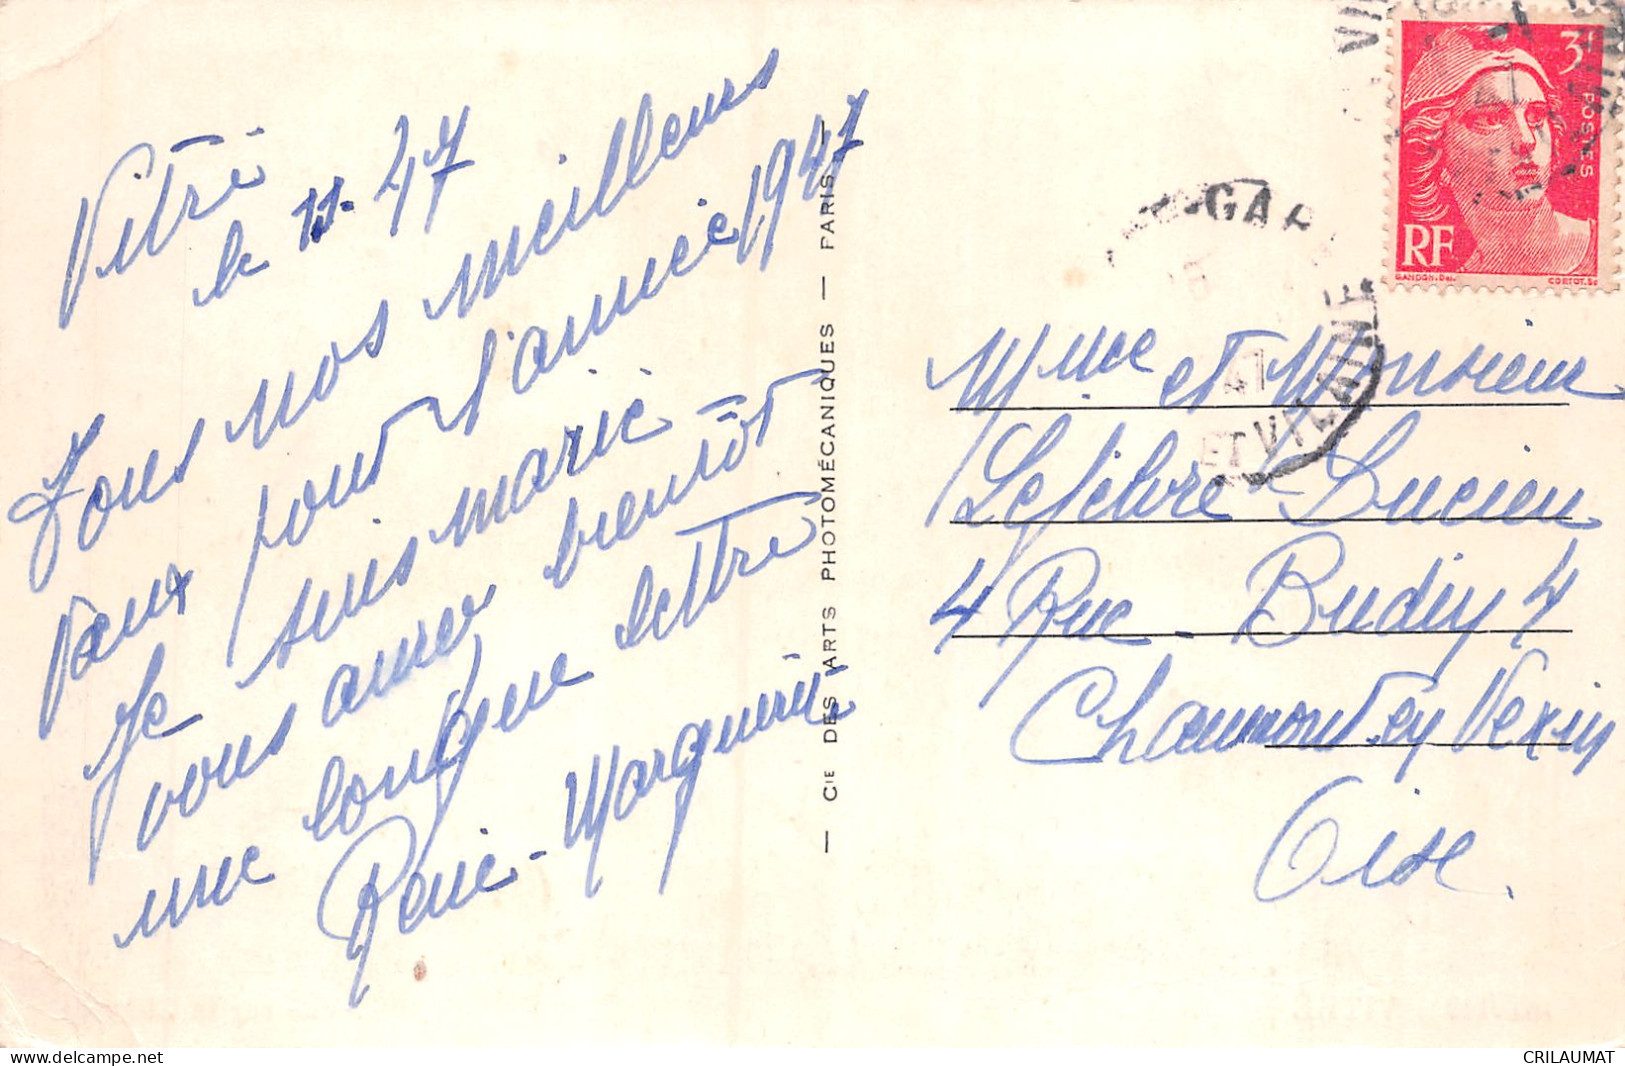 Vitré
le 11-47
Tous nos meilleurs
Vœux pour l'année 1947
Je suis marié
vous aurez bientôt
une longue lettre
René - Marguerite
— CIE DES ARTS PHOTOMÉCANIQUES — PARIS —
3F
POSTES
RF
GANDON.Del.
CORTOT.Sc
GARE
47
ET VILAINE
Mme et Monsieur
Lefebvre Lucien
4 Rue - Budin 4
Chaumont-en Vexin
Oise.
VITRÉ
CRILAUMAT